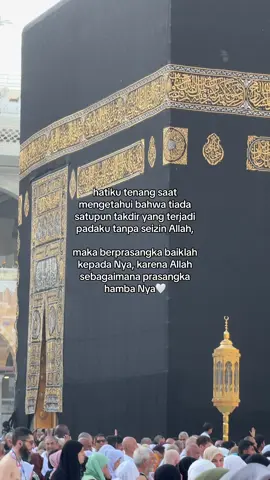 hatiku tenang saat
mengetahui bahwa tiada
satupun takdir yang terjadi
padaku tanpa seizin Allah,
maka berprasangka baiklah
kepada Nya, karena Allah
sebagaimana prasangka
hamba Nya🤍